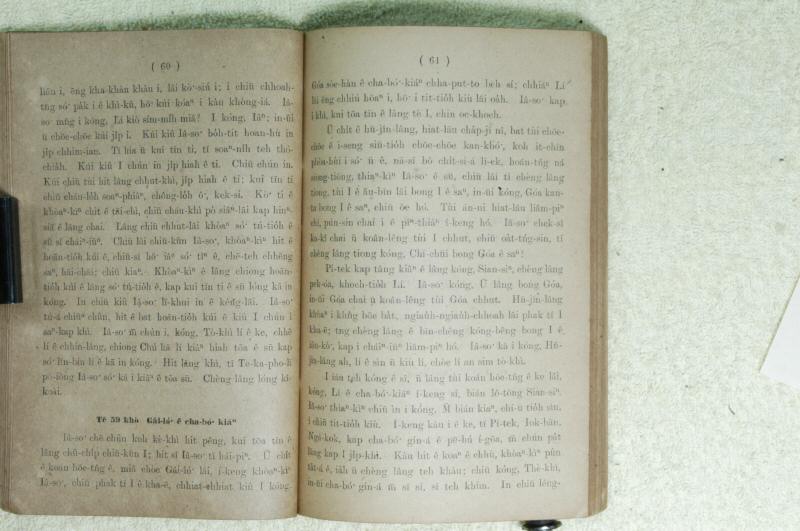 ( 60 )
liān i, ēng kha-khàn khàu i, lâi kò͘-siú i; i chiū chhoah-
tn̄g só͘ pa̍k i ê khì-kū, hō͘ kúi-kóaⁿ i kàu khòng-iá. Iâ-
so͘ mn̄g i kóng, Lí kiò sím-mi̍h miâ? I kóng, Iâⁿ; in-ūi
ū chōe-chōe kúi ji̍p i. Kúi kiû Iâ-so͘ bo̍h-tit hoan-hù in
ji̍p chhim-ian. Tī hia ū kui tīn ti, tī soaⁿ-ni̍h teh thó-
chia̍h. Kúi kiû I chún in ji̍p hiah ê ti. Chiū chún in.
Kúi chiū tùi hit lâng chhut-khì, ji̍p hiah ê ti; kui tīn ti
chiū cháu-lo̍h soaⁿ-phiâⁿ, chông-lo̍h ô͘, kek-sí. Kò͘ ti ê
khòaⁿ-kìⁿ chit ê tāi-chì, chiū cháu-khì pò siâⁿ-lāi kap hiuⁿ-
siā ê lâng chai. Lâng chiū chhut-lâi khòaⁿ só͘ tú-tio̍h ê
sū sī cháiⁿ-iūⁿ. Chiū lâi chiū-kūn Iâ-so͘, khòaⁿ-kìⁿ hit ê
hoān-tio̍h kúi ê, chiū-sī hō͘ iáⁿ só͘ tīⁿ ê, chē-teh chhēng
saⁿ, hái-chāi; chiū kiaⁿ. Khòaⁿ-kìⁿ ê lâng chiong hoān-
tio̍h kúi ê lâng só͘ tú-tio̍h ê, kap kui tīn ti ê sū lóng kā in
kóng. In chiū kiû Iâ-so͘ lī-khui in ê kéng-lāi. Iâ-so͘
tú-á chiūⁿ chûn, hit ê bat hoān-tio̍h kúi ê kiû I chún i
saⁿ-kap khì. Iâ-so͘ m̄ chún i, kóng, Tò-khì lí ê ke, chhē
lí ê chhin-lâng, chiong Chú kā lí kiâⁿ hiah tōa ê sū kap
só͘ lîn-bín lí ê kā in kóng. Hit lâng khì, tī Te-ka-pho-lī
pò-iông Iâ-so͘ só͘ kā i kiâⁿ ê tōa sū. Chèng lâng lóng kî-
koài.
Tē 59 khò Gâi-ló͘ ê cha-bó͘ kiáⁿ
Iâ-so͘ chē chûn koh kè-khì hit pêng, kui tōa tīn ê
lâng chū-chi̍p chiū-kūn I; hit sî Iâ-so͘ tī hái-piⁿ. Ū chi̍t
ê koan hōe-tn̂g ê, miâ chòe Gâi-ló͘ lâi, í-keng khòaⁿ-kìⁿ
Iâ-so͘, chiū phak tī I ê kha-ē, chhiat-chhiat kiû I kóng,
( 61 )
Góa sòe-hàn ê cha-bó͘-kiáⁿ chha-put-to beh sí; chhiáⁿ Lí
lâi ēng chhiú hōaⁿ i, hō͘ i tit-tio̍h kiù lâi oa̍h. Iâ-so͘ kap
i khì, kui tōa tīn ê lâng tè I, chin oe-khoeh.
Ū chi̍t ê hū-jîn-lâng, hiat-lāu cha̍p-jī nî, bat tùi chōe-
chōe ê i-seng siū-tio̍h chōe-chōe kan-khó͘, koh it-chīn
phòa-hùi i só͘ ū ê, nā-sī bô chi̍t-sî-á lī-ek, hoán-tńg ná
siong-tiōng, thiaⁿ-kìⁿ Iâ-so͘ ê sū, chiū lâi tī chèng lâng
tiong, tùi I ê āu-bīn lâi bong I ê saⁿ, in-ūi kóng, Góa kan-
ta bong I ê saⁿ, chiū òe hó. Tùi án-ni hiat-lāu liâm-piⁿ
chí, pún-sin chai i ê pīⁿ-thiàⁿ í-keng hó. Iâ-so͘ chek-sî
ka-kī chai ū koân-lêng tùi I chhut, chiū oa̍t-tńg-sin, tī
chèng lâng tiong kóng, Chī-chūi bong Góa ê saⁿ?
Pí-tek kap tâng kiâⁿ ê lâng kóng, Sian-siⁿ, chèng lâng
pek-óa, khoeh-tio̍h Lí. Iâ-so͘ kóng, Ū lâng bong Góa,
in-ūi Góa chai ū koân-lêng tùi Góa chhut. Hū-jîn-lâng
khòaⁿ i khǹg bōe ba̍t, ngiauh-ngiauh-chhoah lâi phak tī I
kha-ē; tng chèng lâng ê bīn-chêng kóng-bêng bong I ê
iân-kò͘, kap i cháiⁿ-iūⁿ liâm-piⁿ hó. Iâ-so͘ kā i kóng, Hū-
jîn-lâng ah, lí ê sìn ū kiù lí, chòe lí an sim tò-khì.
I iáu teh kóng ê sî, ū lâng tùi koán hōe-tn̂g ê ke lâi,
kóng, Lí ê cha-bó͘-kiáⁿ í-keng sí, bián lô-tōng Sian-siⁿ.
Iâ-so͘ thiaⁿ-kìⁿ chiū ìn i kóng, M̄ bián kiaⁿ, chí-ū tio̍h sìn,
i chiū tit-tio̍h kiù. Í-keng kàu i ê ke, tî Pí-tek, Iok-hān,
Ngá-kok, kap cha-bó͘ gín-á ê pē-bú í-gōa, m̄ chún pa̍t
lâng kap I ji̍p-khì. Kàu hit ê koaⁿ ê chhù, khòaⁿ-kìⁿ pûn
ta̍t-á ê, iáh ū chèng lâng teh khàu; chiū kóng, Thè-khì,
in-ūi cha-bó͘ gín-á m̄ sī sí, sī teh khùn. In chiū léng-